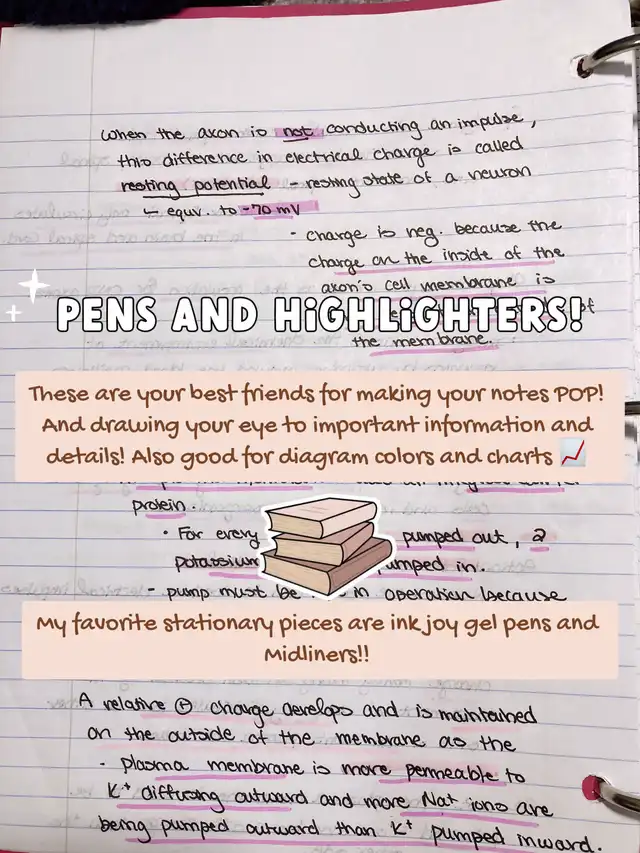 when the axon is not conducting an impulse,
this difference in electrical charge is called
resting potential - resting state of a neuron
↳ equv. to -70 mV
- charge is neg. because the
charge on the inside of the
axon's cell membrane is
PENS AND HIGHLIGHTERS!
of
the membrane.
These are your best friends for making your notes POP!
And drawing your eye to important information and
details! Also good for diagram colors and charts 📈
protein.
• For every pumped out, 2
potassium pumped in.
- pump must be in operation because
My favorite stationary pieces are ink joy gel pens and
Midliners!!
A relative ⊕ charge develops and is maintained
on the outside of the membrane as the
- plasma membrane is more permeable to
K⁺ diffusing outward and more Na⁺ ions are
being pumped outward than K⁺ pumped inward.